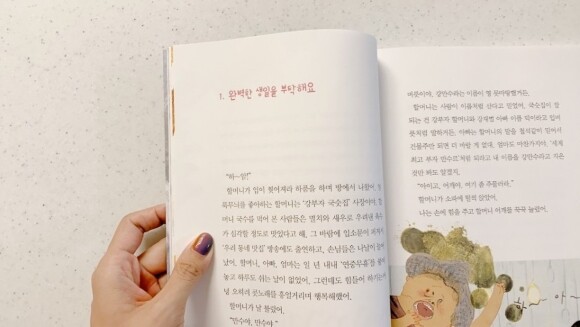 1. 완벽한 생일을 부탁해요
"하—암!"
할머니가 입이 찢어져라 하품을 하며 방에서 나왔어. 알
록무늬를 좋아하는 할머니는 '강부자 국숫집' 사장이야. 할
머니 국수를 먹어 본 사람들은 멸치와 새우로 우려낸 육수
가 심각할 정도로 맛있다고 해. 그 바람에 입소문이 퍼져서
'우리 동네 맛집' 방송에도 출연하고, 손님들은 나날이 많아
났어. 할머니, 아빠, 엄마는 일 년 내내 '연중무휴'를
놓고 하루도 쉬는 날이 없었어. 그런데도 힘들어 하기는
녕 오히려 콧노래를 흥얼거리며 행복해했어.
할머니가 날 불렀어.
"만수야, 만수야."
바꾼이야. 강만수라는 이름이 썩 못마땅했거든.
할머니는 사람이 이름처럼 산다고 믿었어. 국숫집이 잘
되는 건 강부자 할머니와 강재벌 아빠 이름 덕이라고 입이
닳도록 말하거든. 아빠는 할머니의 말을 철석같이 믿어서
건물주만 되면 더 바랄 게 없대. 엄마도 마찬가지야. '세계
최고 부자 만수르'처럼 되라고 내 이름을 강만수라고 지은
것만 봐도 알겠지.
"아이고, 어깨야. 여기 좀 주물러라."
할머니가 소파에 털썩 앉았어.
나는 손에 힘을 주고 할머니 어깨를 꾹꾹 눌렀어.